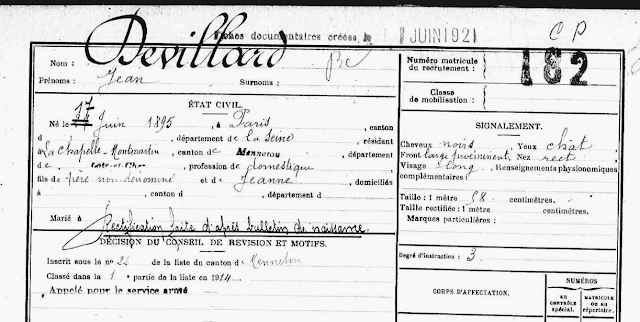 Fiches documentaires créées le 1 JUIN 1921
C P
Devillard
Nom :
Prénoms : Jean Surnoms :
Numéro matricule du recrutement : 182
Classe de mobilisation :
ÉTAT CIVIL.
17
Né le Juin 1895, à Paris, canton
d , département de la Seine, résidant
à La Chapelle-Montmartin, canton de Mennetou, département
de Loir-et-Cher, profession de domestique
fils de père non dénommé et de Jeanne, domiciliés
à , canton d , département d
Marié à
Rectification faite d'après bulletin de naissance.
DÉCISION DU CONSEIL DE REVISION ET MOTIFS.
Inscrit sous le n° 22 de la liste du canton de Mennetou
Classé dans la 1 partie de la liste en 1914
Appelé pour le service armé
SIGNALEMENT.
Cheveux noirs, Yeux chat
Front large proéminent, Nez rect
Visage long, Renseignements physionomiques
complémentaires :
Taille : 1 mètre 58 centimètres.
Taille rectifiée : 1 mètre centimètres.
Marques particulières :
Degré d'instruction : 3.
CORPS D'AFFECTATION.
NUMÉROS
AU CONTRÔLE spécial.
MATRICULE OU AU répertoire.